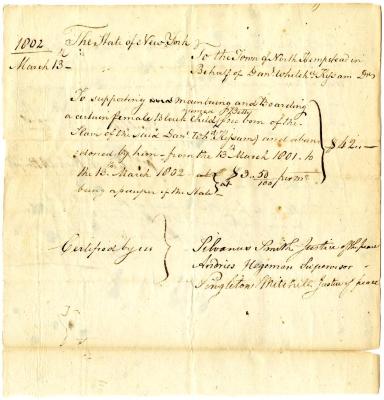 1802
March 13th
The State of New York
To the Town of North Hempstead in
Behalf of Danl Whitehd Kissam Dr
To supporting maintaining and Boarding
a certain female Black Child named Betty free born of the
Slave of the said Danl Whd Kissam and aban
doned by him from the 13th March 1801. to
the 13th March 1802 at $3 50/100 per mo.
being a pauper of the State
$42.—
Certified by us
Silvanus Smith Justice of the peace
Andries Hegeman Supervisor
Singleton Mitchill Justice of peace